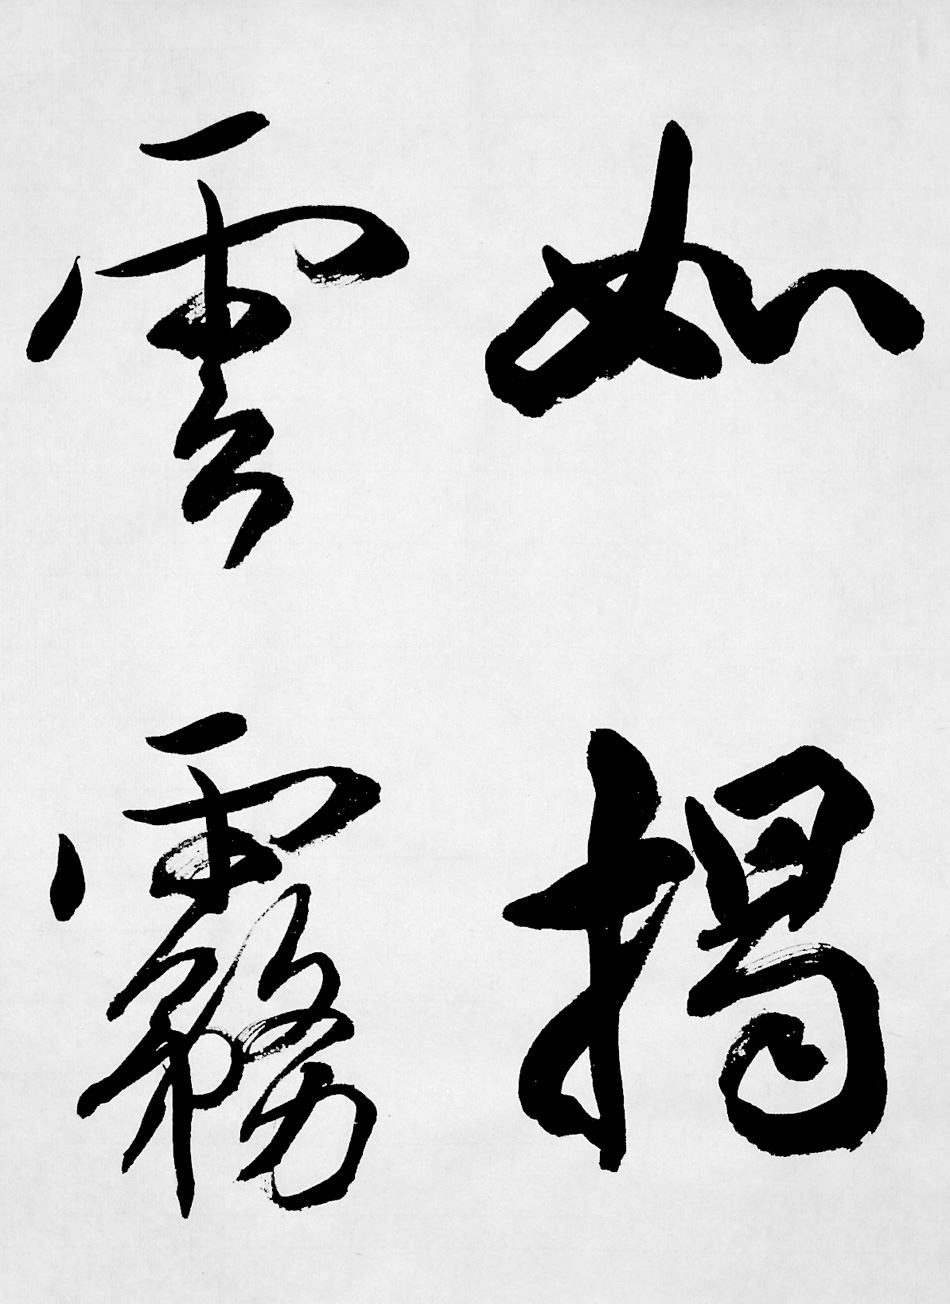 如揭
雲霧